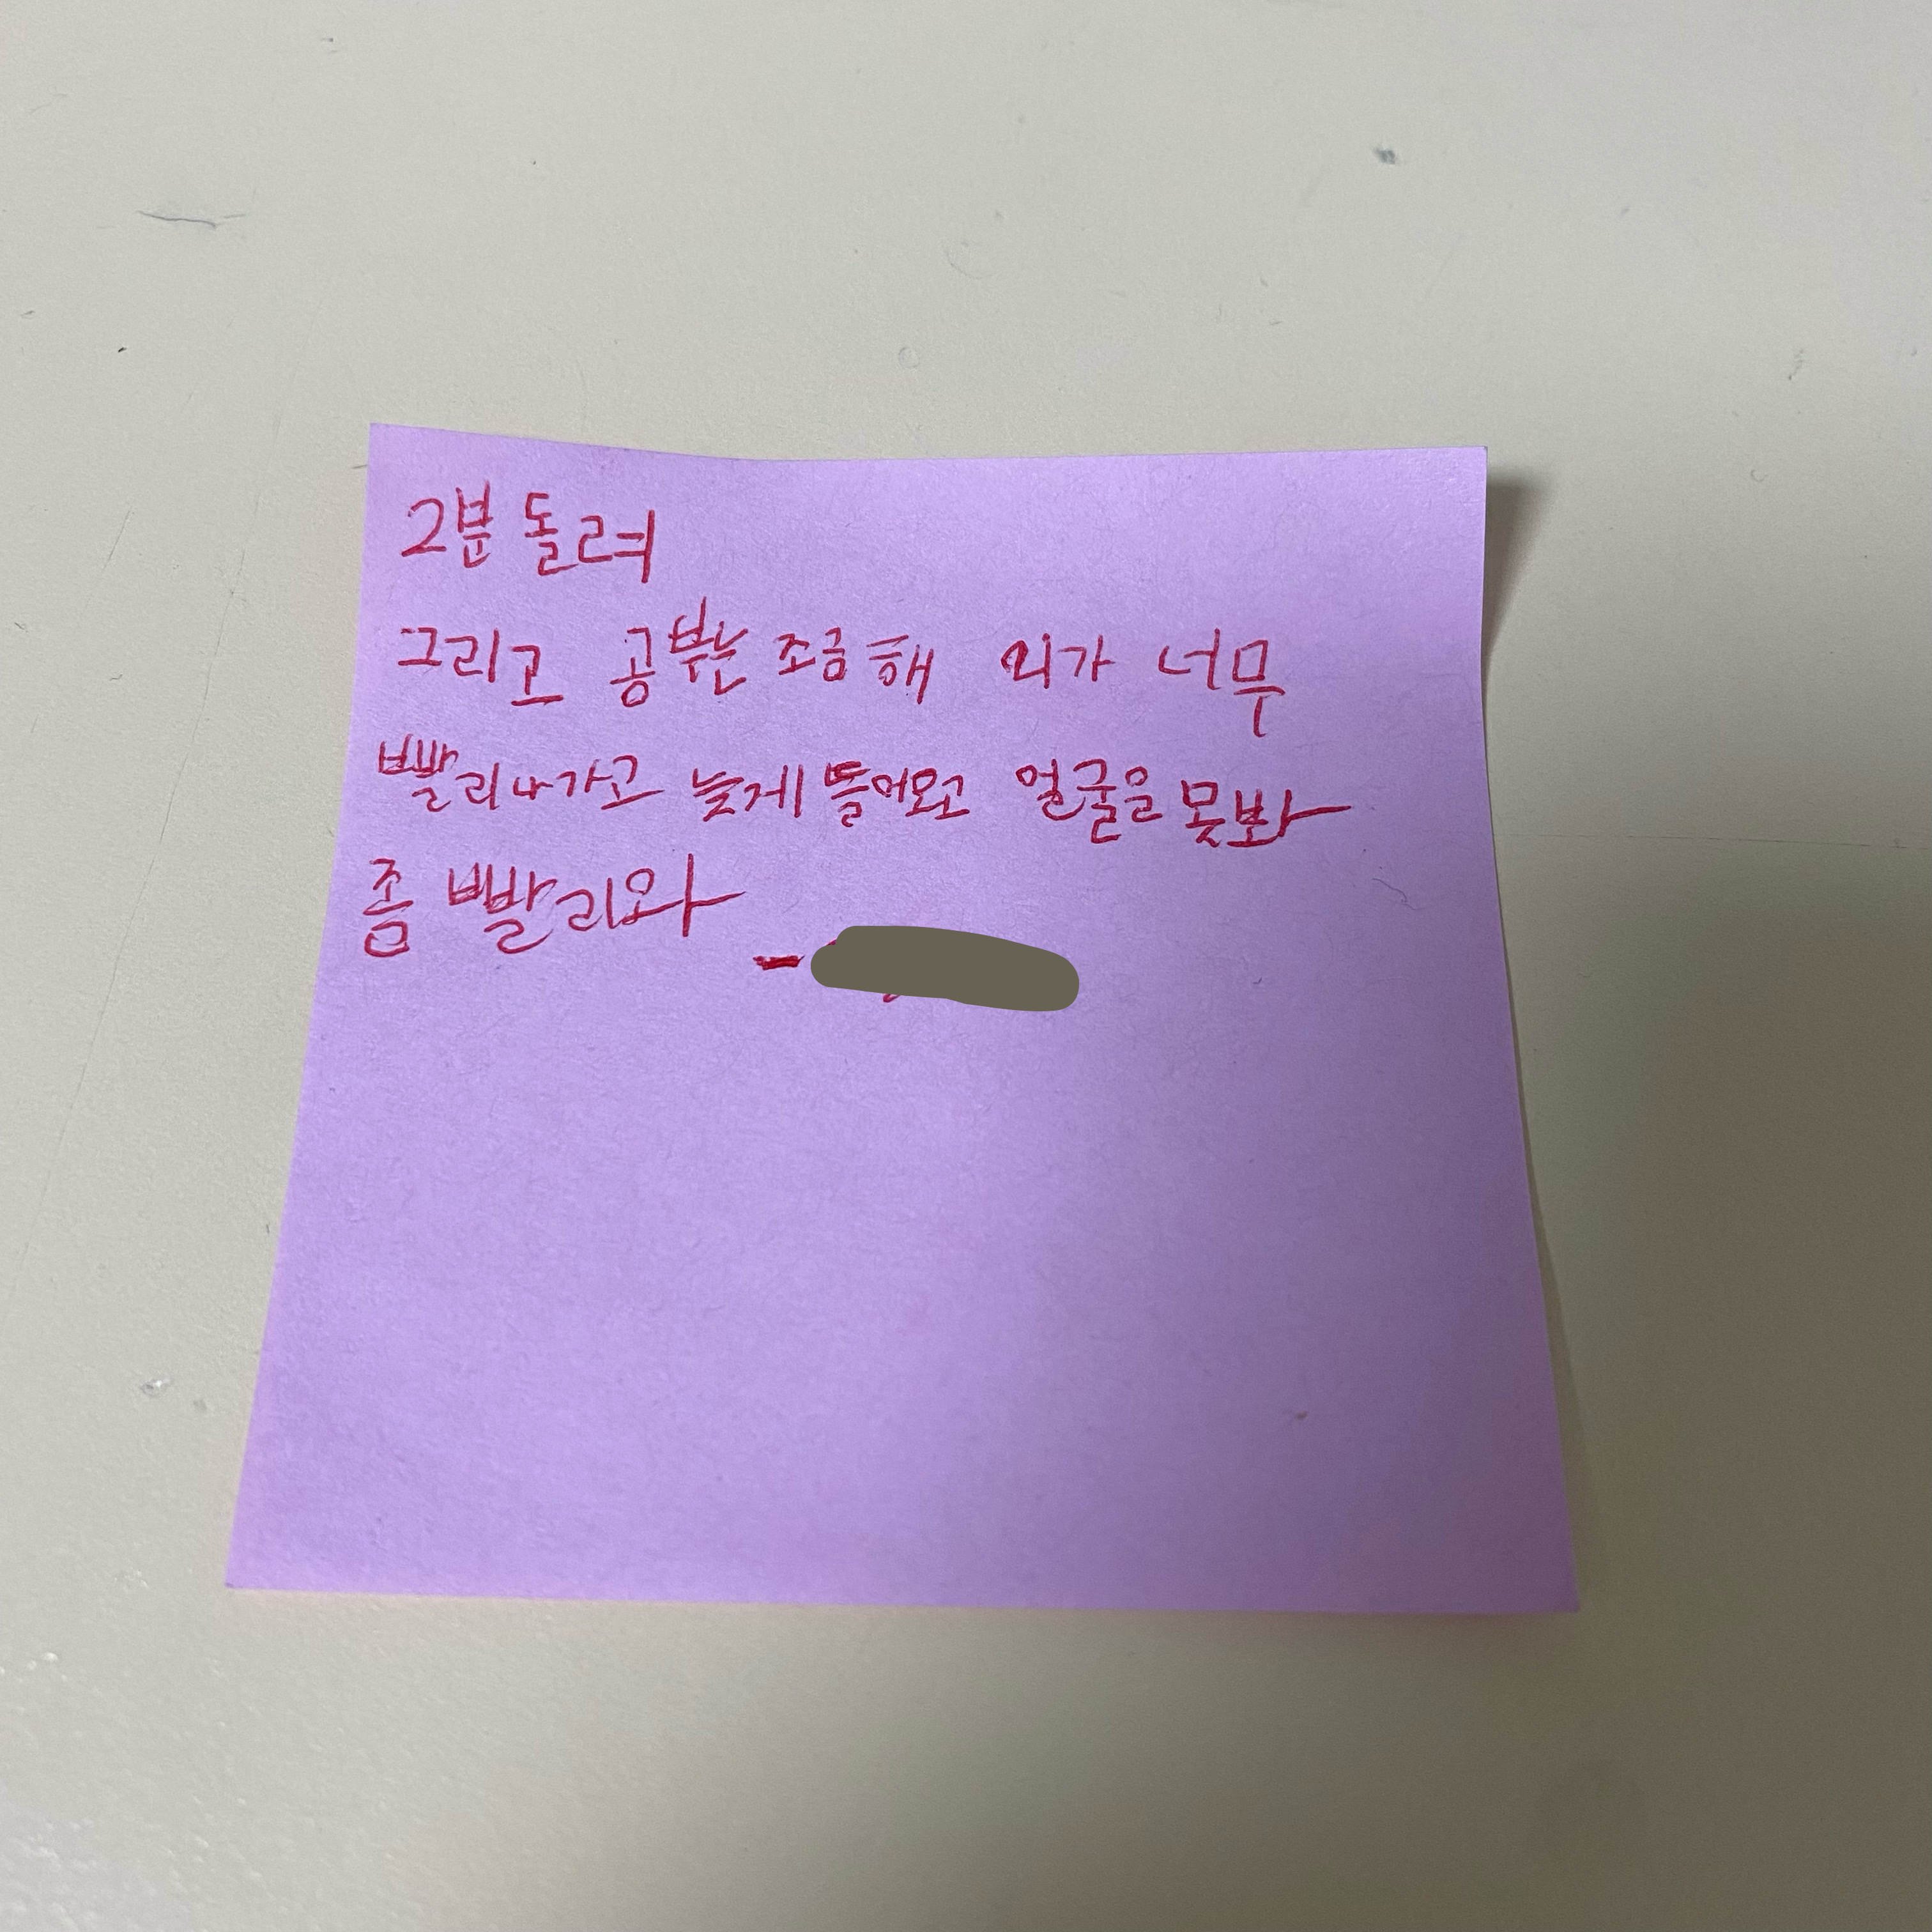 2분 돌려
그리고 공부는 조금해 니가 너무
빨리나가고 늦게 들어오고 얼굴을 못봐
좀 빨리와
-